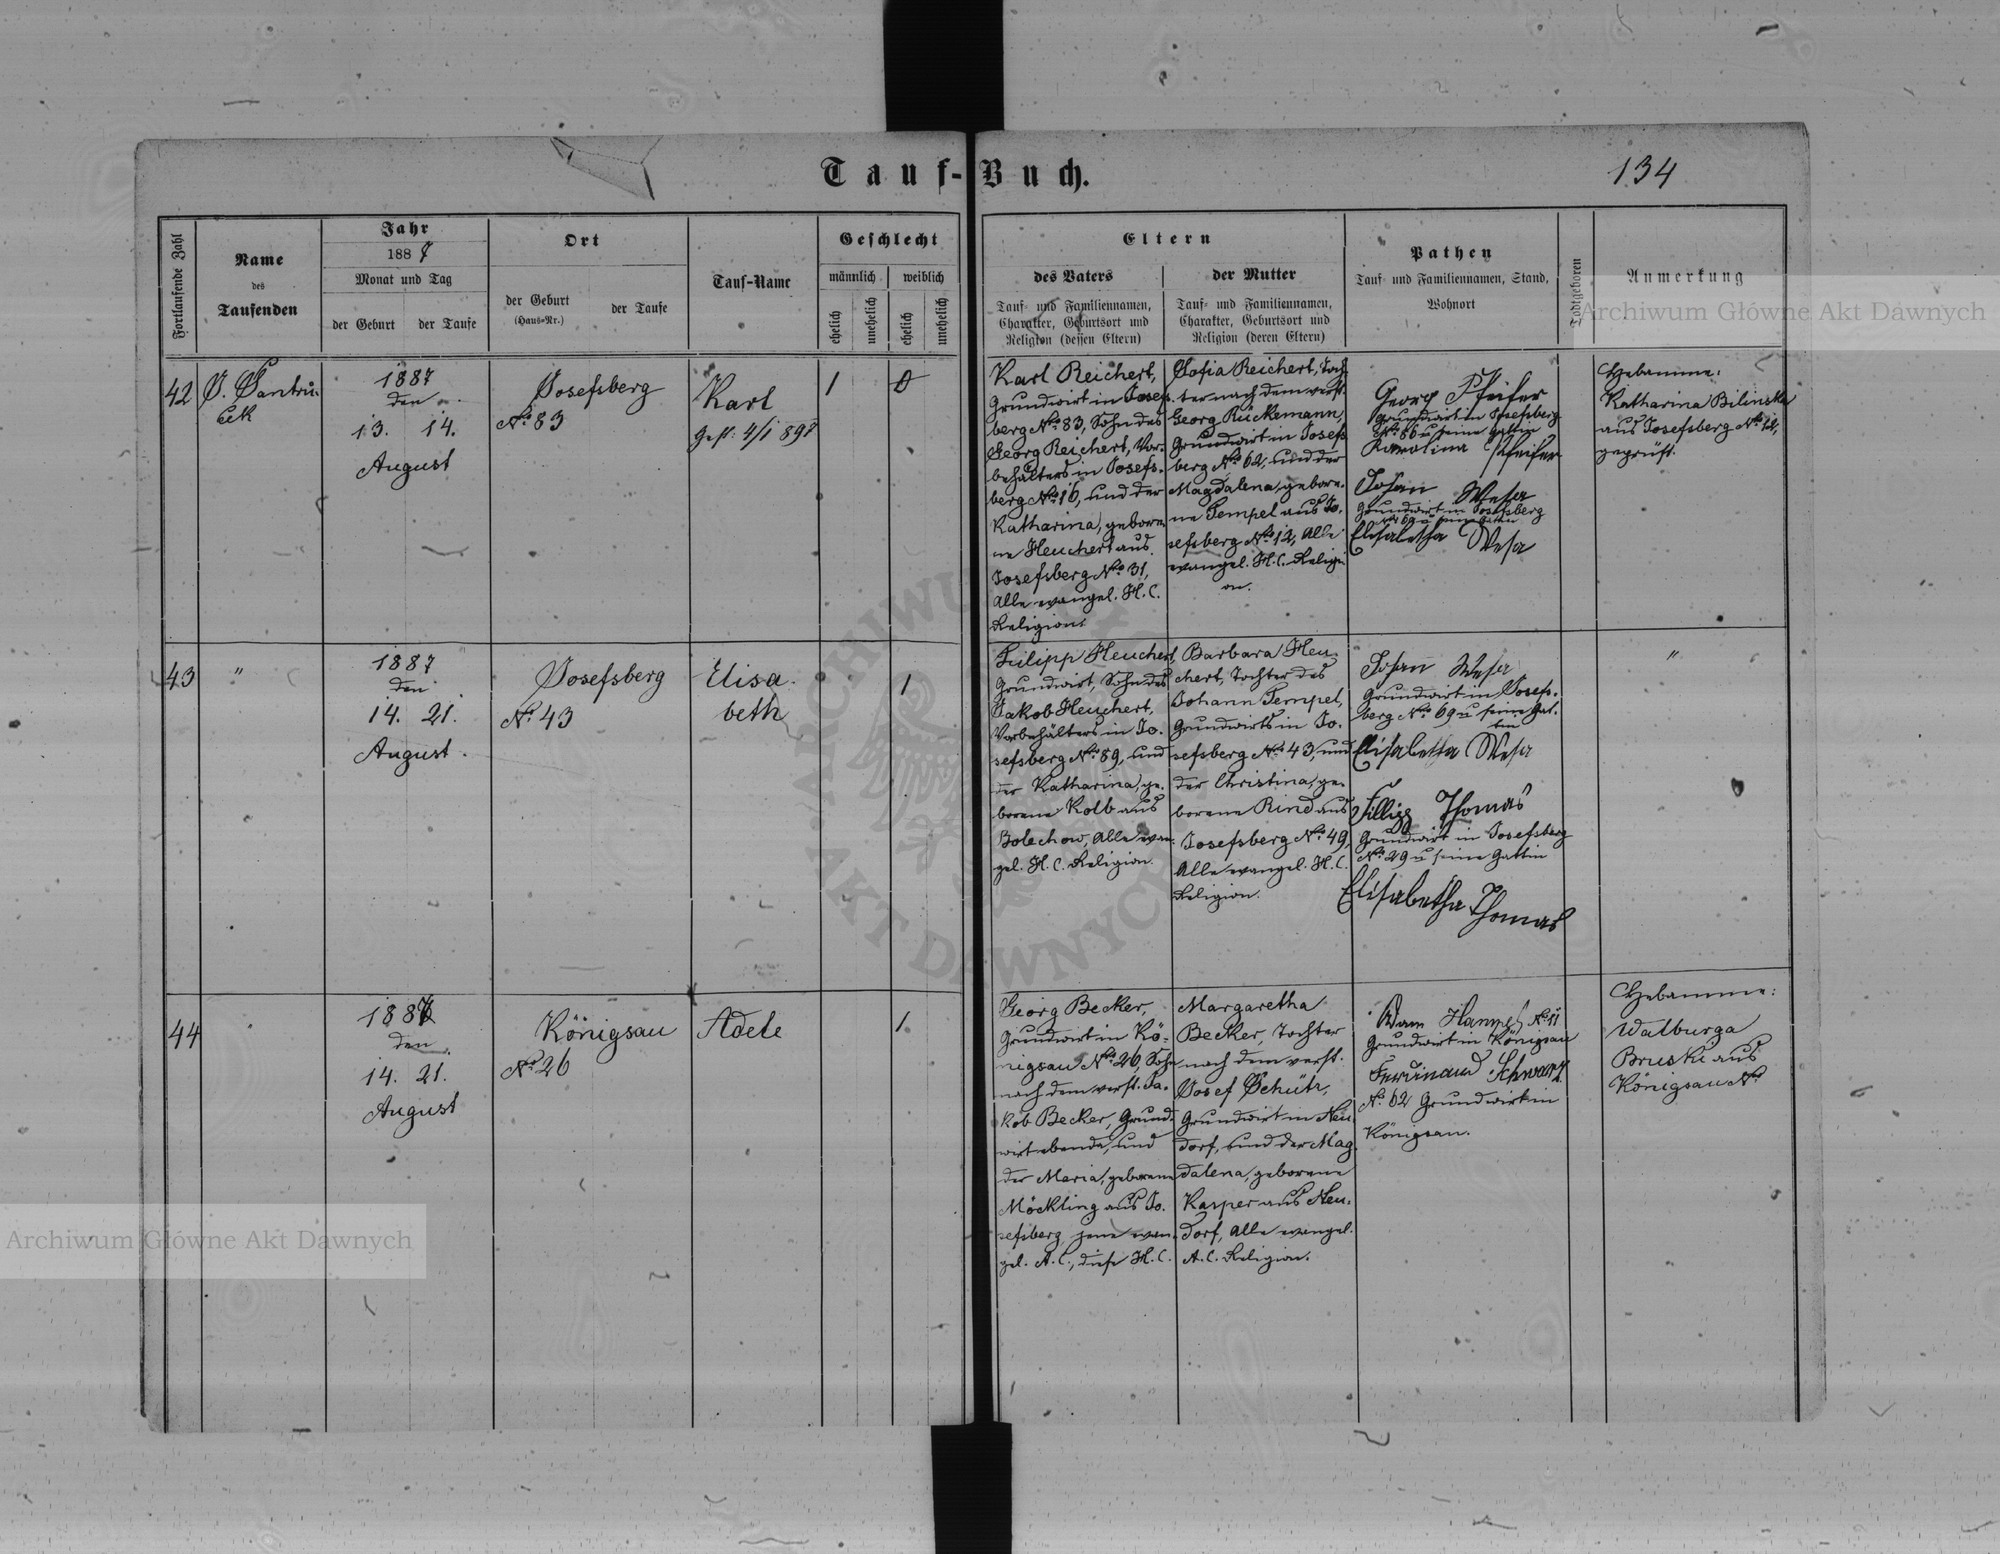 Tauf-Buch.
134
Fortlaufende Zahl
Name
des
Taufenden
Jahr
1887
Monat und Tag
der Geburt
der Taufe
Ort
der Geburt
(Haus-Nr.)
der Taufe
Tauf-Name
Geschlecht
männlich
weiblich
ehelich
unehelich
ehelich
unehelich
Eltern
des Vaters
Tauf- und Familiennamen,
Charakter, Geburtsort und
Religion (dessen Eltern)
der Mutter
Tauf- und Familiennamen,
Charakter, Geburtsort und
Religion (deren Eltern)
Pathen
Tauf- und Familiennamen, Stand,
Wohnort
Todtgeboren
Anmerkung
42
1887
den
13. 14.
August
Josefsberg
No 83
Karl
Gest: 4/1 897
1
0
Karl Reichert,
Grundwirt in Josefs-
berg No 83, Sohn des
Georg Reichert, Vor-
behälters in Josefs-
berg No 16, und der
Katharina, gebore-
ne Heuchert aus
Josefsberg No 31,
Alle evangel. H. C.
Religion.
Sofia Reichert, Toch-
ter nach dem verst.
Georg Rückemann,
Grundwirt in Josefs-
berg No 62, und der
Magdalena, gebore-
ne Tempel aus Jo-
sefsberg No 12, Alle
evangel. H. C. Religi-
on.
Georg Pfeifer
Grundwirt in Josefsberg
No 86 u seine Gattin
Karolina Pfeifer
Johan Wesa
Grundwirt in Josefsberg
No 69 u seine Gattin
Elisabetha Wesa
Hebamme:
Katharina Bilinska
aus Josefsberg No 12,
geprüft.
43
"
1887
den
14. 21.
August.
Josefsberg
No 43
Elisa-
beth
1
Filipp Heuchert,
Grundwirt, Sohn des
Jakob Heuchert,
Vorbehälters in Jo-
sefsberg No 89, und
der Katharina, ge-
borene Kolb aus
Bolechow, Alle evan-
gel. H. C. Religion.
Barbara Heu-
chert, Tochter des
Johann Tempel,
Grundwirts in Jo-
sefsberg No 43, und
der Christina, ge-
borene Rind aus
Josefsberg No 49,
Alle evangel. H. C.
Religion.
Johan Wesa
Grundwirt in Josefs-
berg No 69 u seine Gat-
tin
Elisabetha Wesa
Fillipp Thomas
Grundwirt in Josefsberg
No 29 u seine Gattin
Elisabetha Thomas
"
44
1887
den
14. 21.
August
Königsau
No 26
Adele
1
Georg Becker,
Grundwirt in Kö-
nigsau No 26, Sohn
nach dem verst. Ja-
kob Becker, Grund-
wirt ebenda, und
der Maria, geborene
Möckling aus Jo-
sefsberg, jene evan-
gel. A. C., diese H. C.
Margaretha
Becker, Tochter
nach dem verst.
Josef Schütz,
Grundwirt in Neu-
dorf, und der Mag-
dalena, geborene
Kasper aus Neu-
dorf, Alle evangel.
A. C. Religion.
No 11
Grundwirt in Königsau
Ferdinand Schwarz
No 62 Grundwirt in
Königsau.
Hebamme:
Walburga
Bruski aus
Königsau No
Archiwum Główne Akt Dawnych
Archiwum Główne Akt Dawnych
ARCHIWUM
AKT DAWNYCH